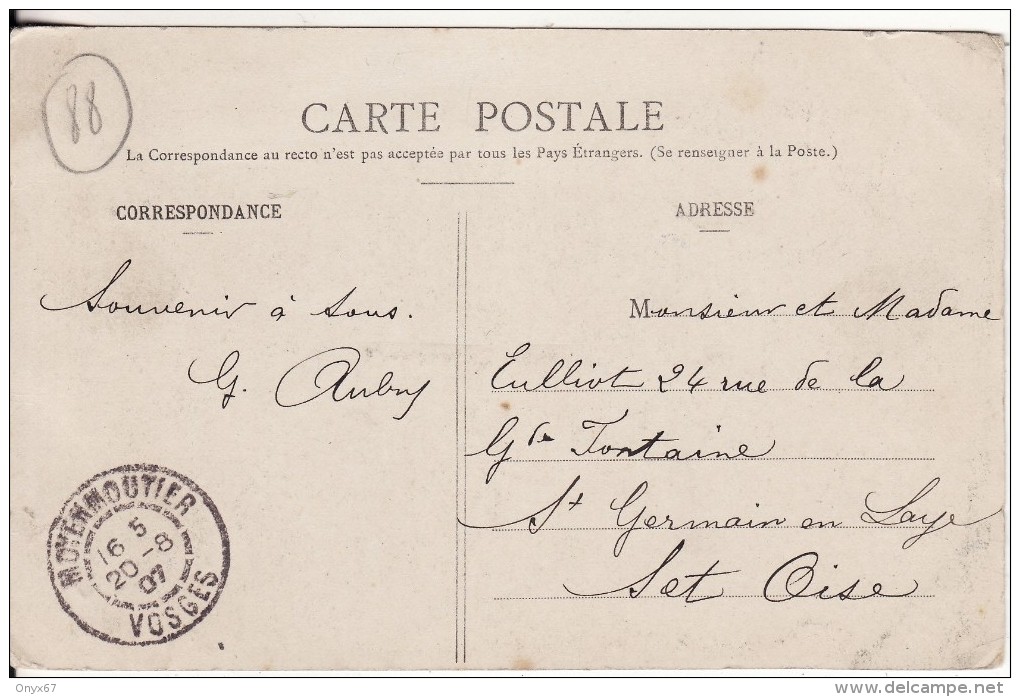 88
CARTE POSTALE
La Correspondance au recto n'est pas acceptée par tous les Pays Étrangers. (Se renseigner à la Poste.)
CORRESPONDANCE
Souvenir à tous.
G. Aubry
MOYENMOUTIER
16 5
20 -8
07
VOSGES
ADRESSE
Monsieur et Madame
Eulliot 24 rue de la
Gde Fontaine
St Germain en Laye
S et Oise
Onyx67
delcampe.net